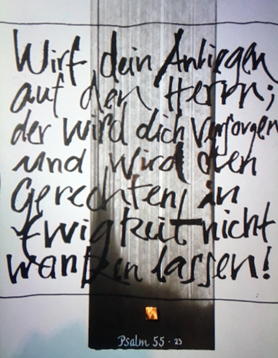 Wirf dein Anliegen
auf den Herrn;
der wird dich versorgen
und wird den
Gerechten in
Ewigkeit nicht
wanken lassen!
Psalm 55 · 23